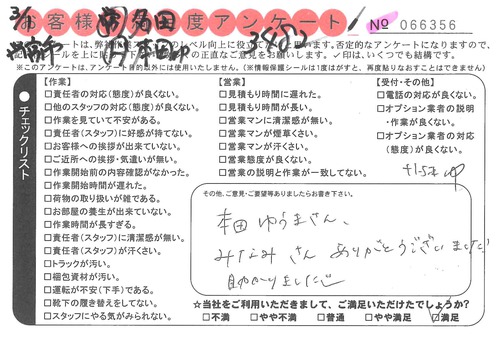 お客様満足度アンケート
No 066356
3/1
当アンケートは、弊社
レベル向上に役立て
います。否定的なアンケートになりますので、
の正直なご意見をお願いします。✓印は、いくつでも結構です。
※このアンケートは、アンケート目的以外には使用いたしません。(※情報保護シールは1度はがすと、再度貼りなおすことはできません)
チェックリスト
【作業】
□責任者の対応(態度)が良くない。
□他のスタッフの対応(態度)が良くない。
□作業を見ていて不安がある。
□責任者(スタッフ)に好感が持てない。
□お客様への挨拶が出来ていない。
□ご近所への挨拶・気遣いが無い。
□作業開始前の内容確認がなかった。
□作業開始時間が遅れた。
□荷物の取り扱いが雑である。
□お部屋の養生が出来ていない。
□作業時間が長すぎる。
□責任者(スタッフ)に清潔感が無い。
□責任者(スタッフ)が汗くさい。
□トラックが汚い。
□梱包資材が汚い。
□運転が不安(下手)である。
□靴下の履き替えをしてない。
□スタッフにやる気がみられない。
【営業】
□見積もり時間に遅れた。
□見積もり時間が長い。
□営業マンに清潔感が無い。
□営業マンが煙草くさい。
□営業マンが汗くさい。
□営業態度が良くない。
□営業の説明と作業が一致してない。
【受付・その他】
□電話の対応が良くない。
□オプション業者の説明
・作業が良くない。
□オプション業者の対応
(態度)が良くない。
その他、ご意見・ご要望等ありましたらお書き下さい。
本田ゆうまさん、
みなみさんありがとうございました!
助かりました
☆当社をご利用いただきまして、ご満足いただけたでしょうか?
□不満 □やや不満 □普通 □やや満足 □満足